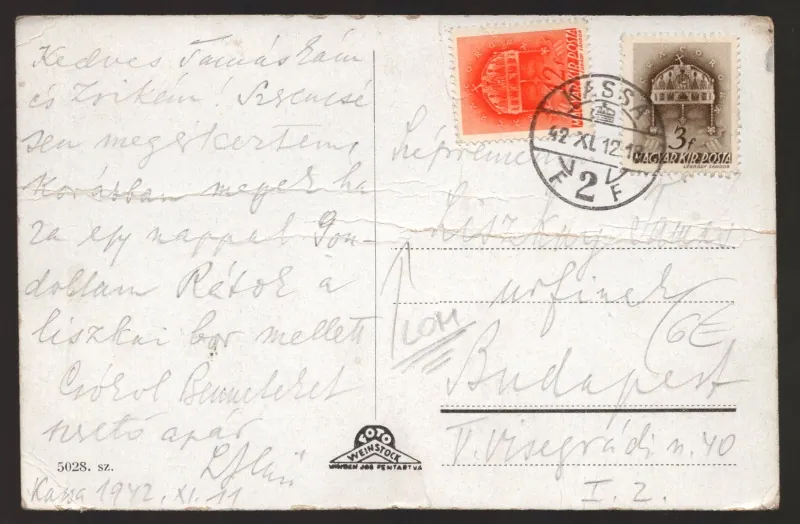 Kedves Tamáskám
és Zsikém! Szerencsé
sen megérkeztem,
Korábban megyek ha
za egy nappal Gon-
doltam Rátok a
liszkai bor mellett
Csókol Benneteket
szerető apátok
Kassa 1942. XI. 11
5028. sz.
FOTO
WEINSTOCK
MINDEN JOG FENTARTVA
2f
MAGYAR KIR. POSTA
3f
MAGYAR KIR. POSTA
LÉGRÁDY SÁNDOR
KASSA
42 XI. 12. 18
2
F F
Liszkay Tamás
urfinak
Budapest
V. Visegrádi u. 40
I. 2.
LOM
6E